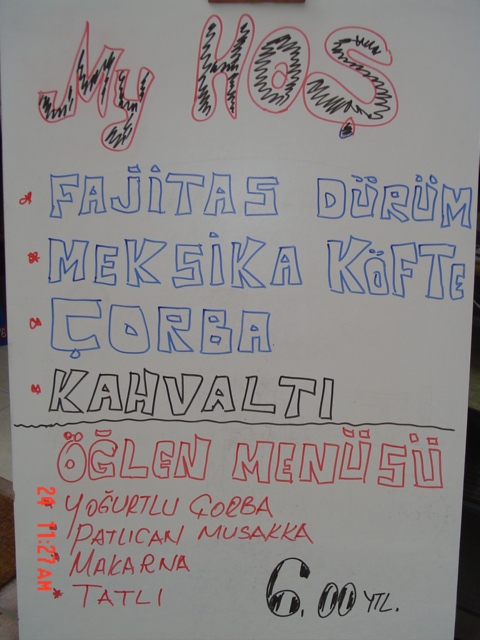 My HOŞ
* FAJİTAS DÜRÜM
* MEKSİKA KÖFTE
* ÇORBA
* KAHVALTI
ÖĞLEN MENÜSÜ
* YOĞURTLU ÇORBA
* PATLICAN MUSAKKA
* MAKARNA
* TATLI
6.00 YTL.
11:27 AM